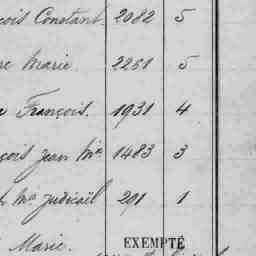 çois Constant 2082 5
re Marie 2261 5
François. 1931 4
çois jean Mie 1483 3
Ma judicaël 201 1
Marie. EXEMPTÉ